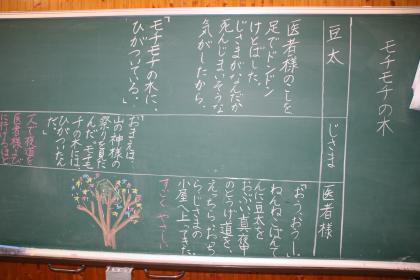 モチモチの木
豆太
医者様のこしを
足でドンドン
けとばした。
じさまがなんだか
死んじまいそうな
気がしたから。
「モチモチの木に、
ひがついている。」
じさま
「おまえは、
山の神様の
祭りを見た
んだ。モチモ
チの木には
ひがついたん
だ。
一人で夜道を
医者様よびに
行けるほど
医者様
「おう、おう。」
ねんねこばんて
んに豆太を
おぶい真夜中
のとうげ道を、
えっちら、おっち
ら、じさまの
小屋へ上ってきた。
すごくやさしい